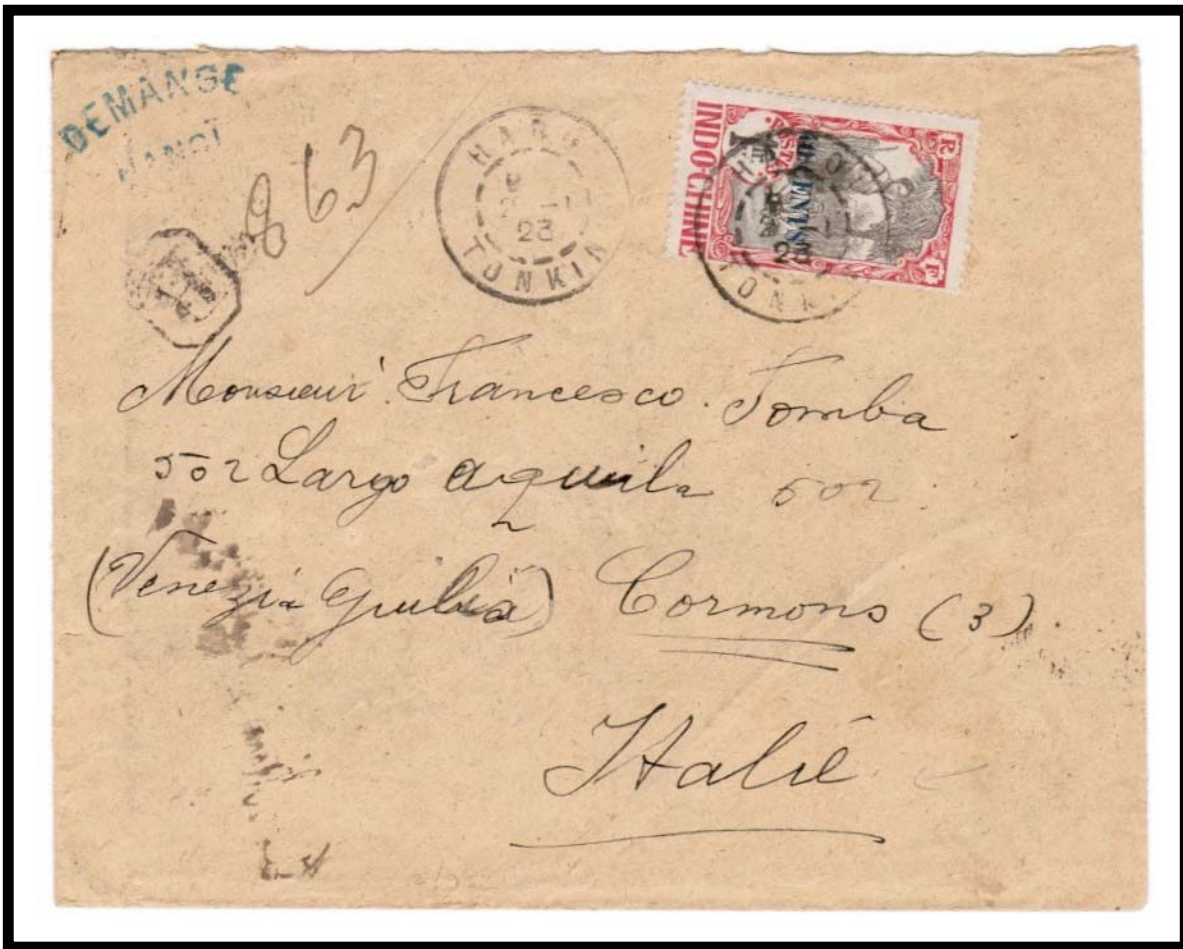 DEMANGE
HANOI
863
R
TONKIN
23
INDO-CHINE
40 CENTS
POSTES
R F
TONKIN
23
Monsieur Francesco Tomba
502 Largo aquila 502
(Venezia Giulia) Cormons (3)
Italie